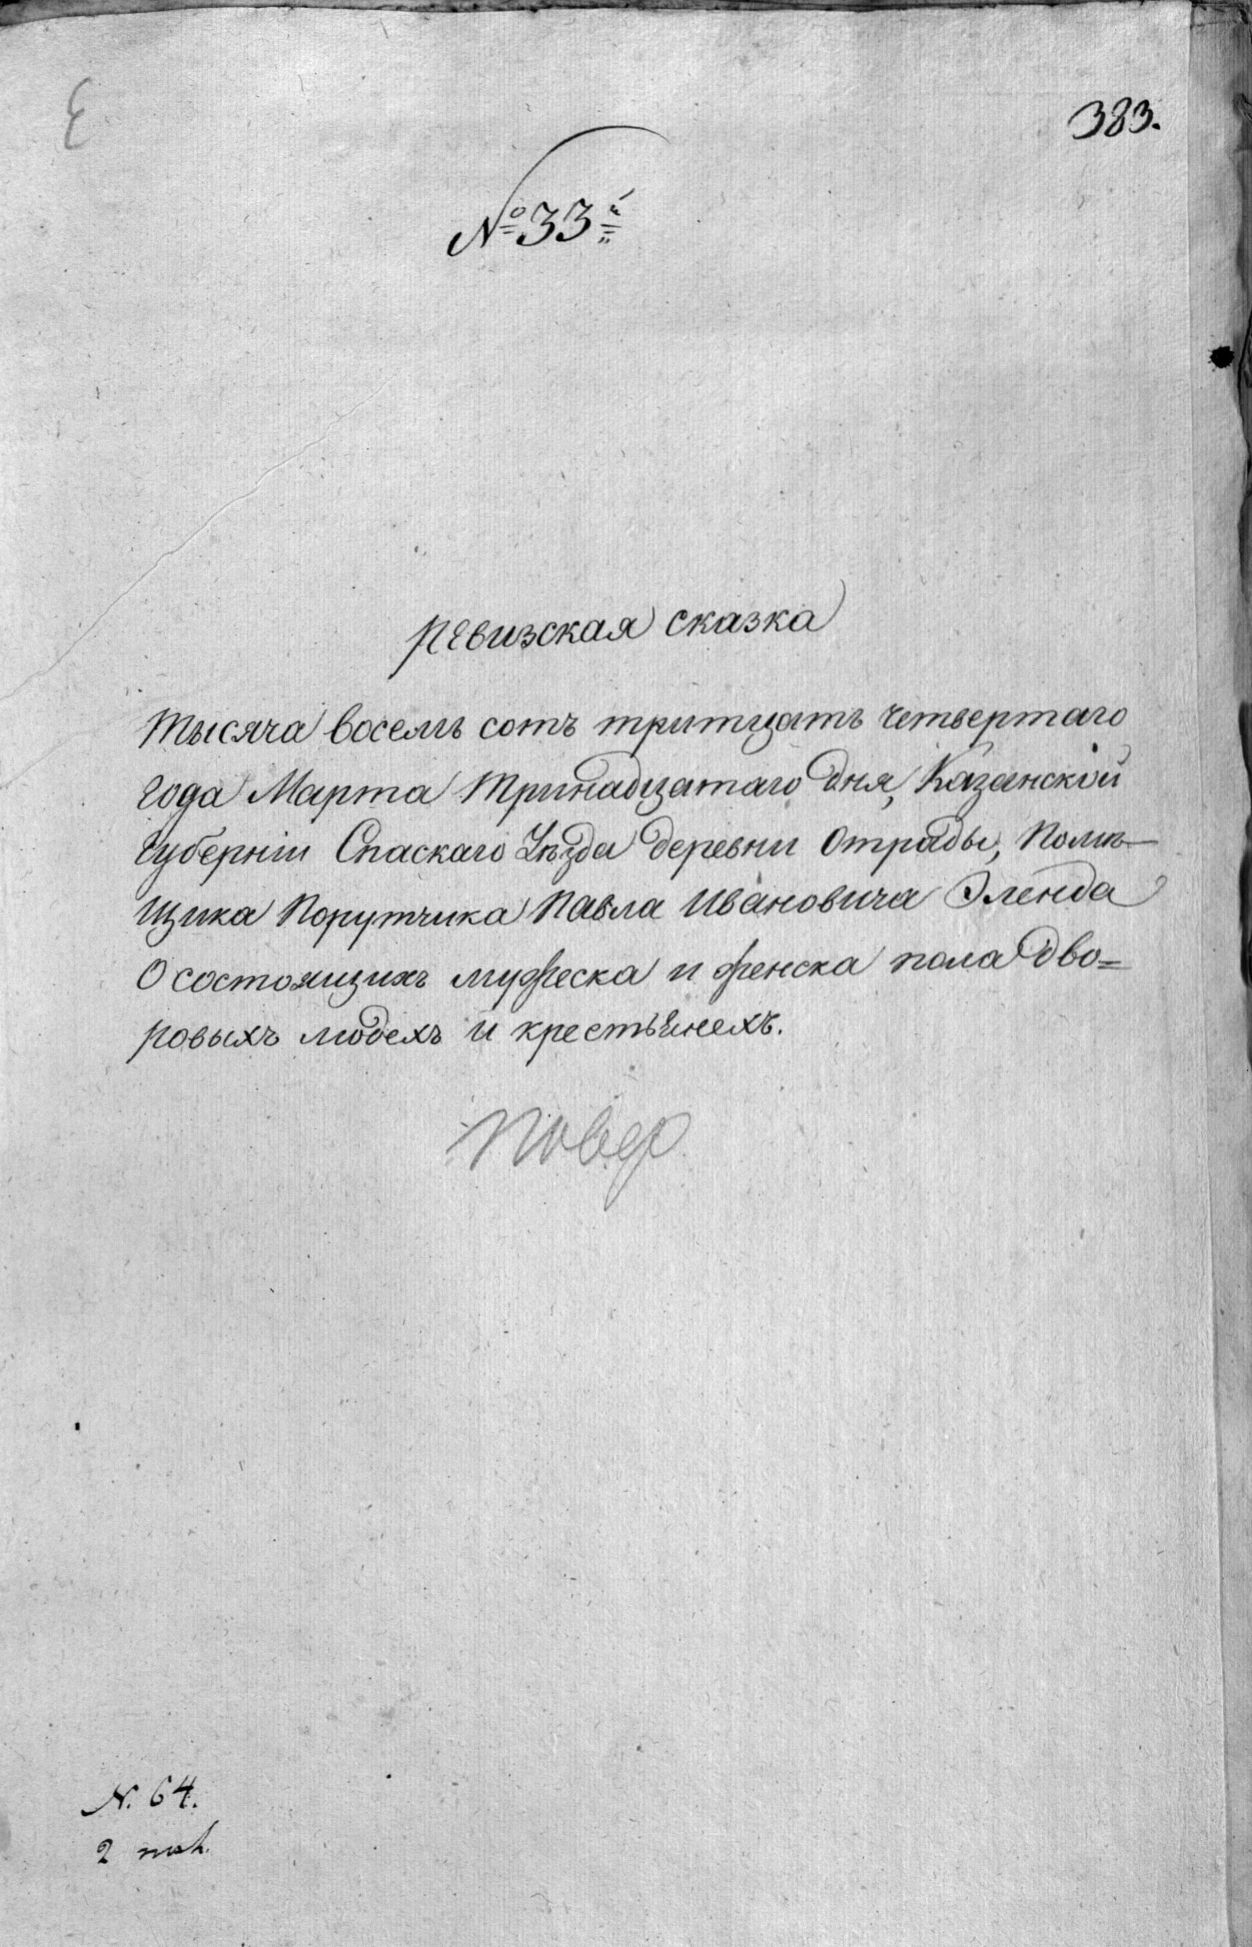 383.
№ 33й
Ревизская сказка
Тысяча восемь сотъ тритцать четвертаго
года Марта тринадцатаго дня, Казанской
Губерніи Спаскаго Уѣзда деревни Отрады, Помѣ-
щика Порутчика Павла Ивановича Эленда
О состоящихъ мужеска и женска пола дво=
ровыхъ людехъ и крестьянехъ.
Повер
N. 64.
2